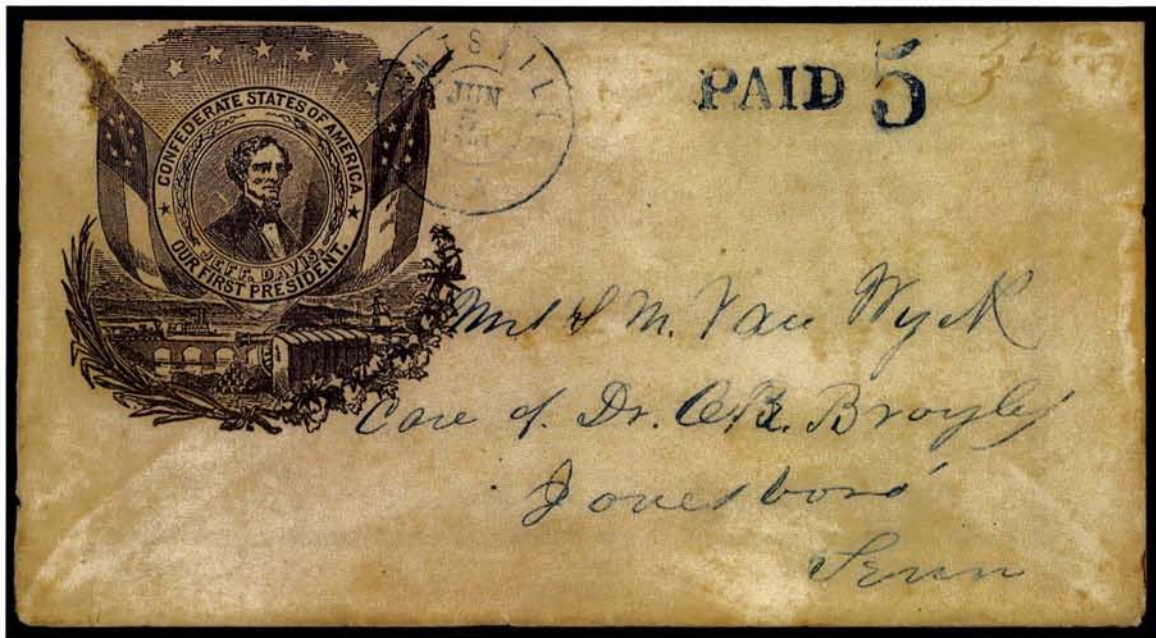 CONFEDERATE STATES OF AMERICA.
JEFF. DAVIS,
OUR FIRST PRESIDENT.
NTSVILL
JUN
PAID 5
M. Van Wyck
Care of Dr. O.R. Broyles
Jonesboro'
Tenn